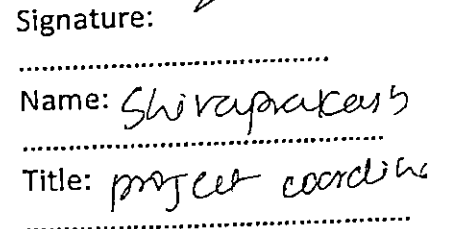 Signature:
Name: Shivaprakash
Title: project coordin